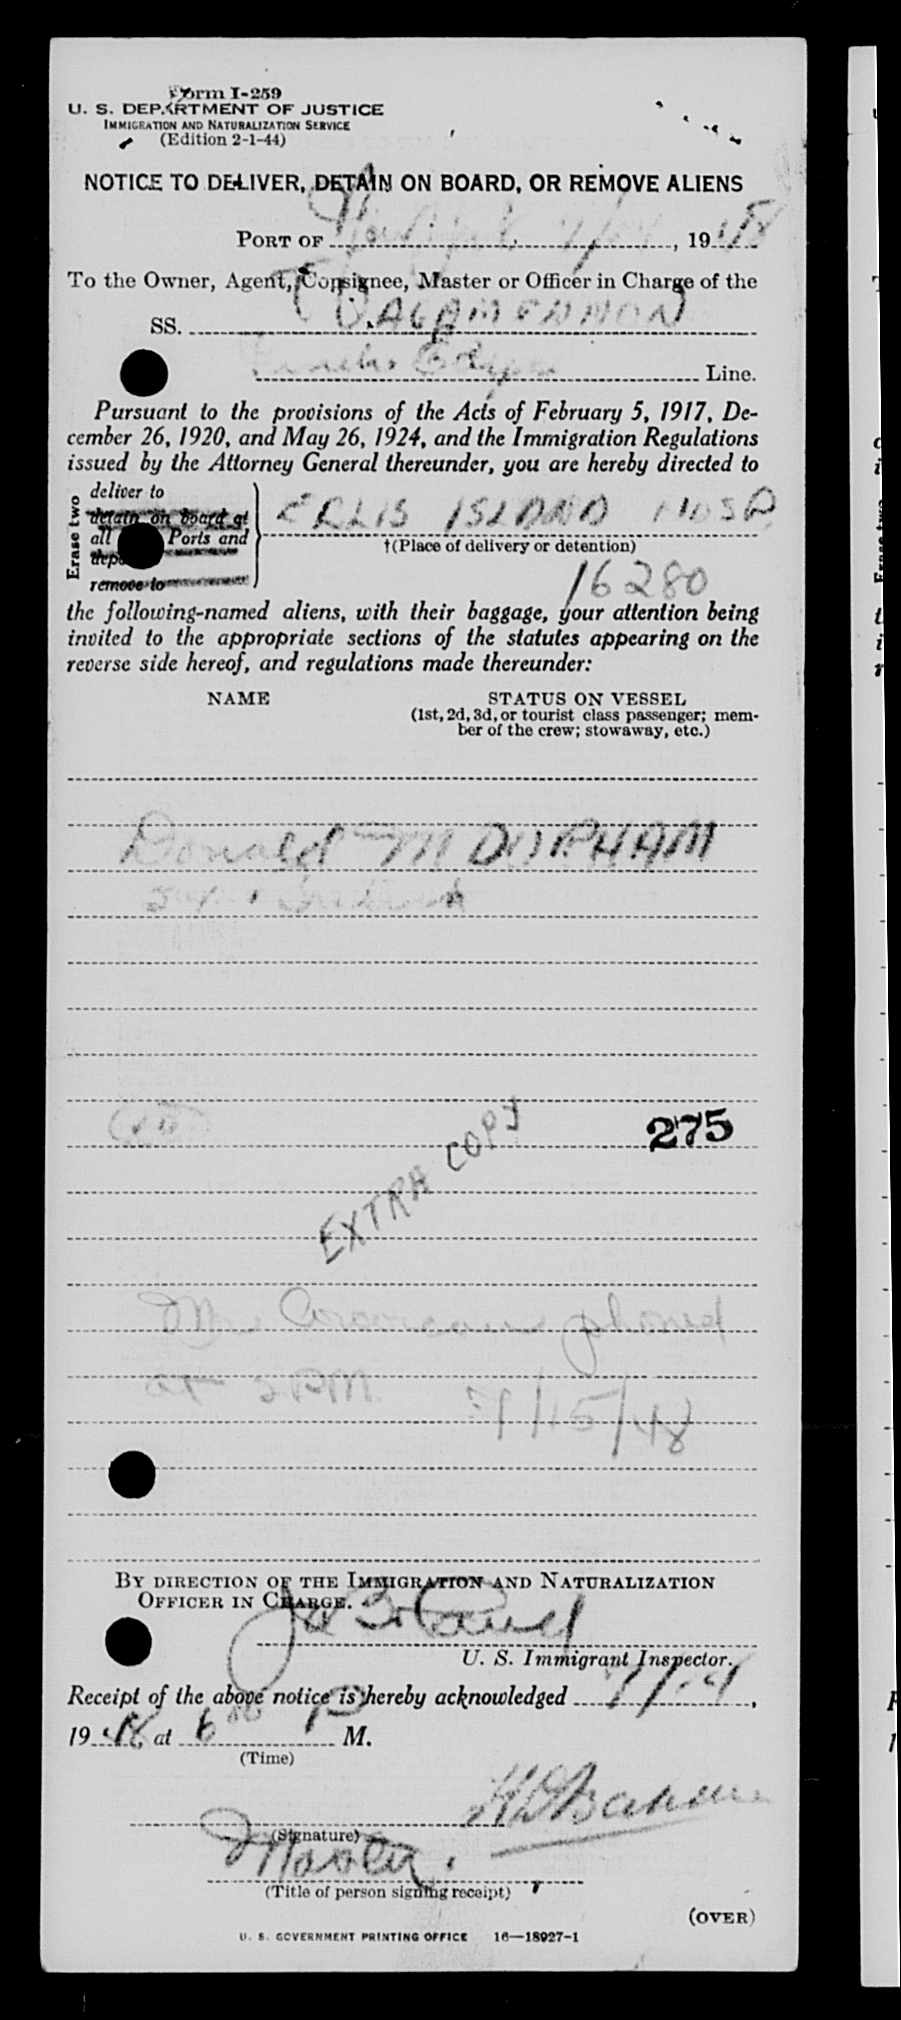 Form I-259
U. S. DEPARTMENT OF JUSTICE
IMMIGRATION AND NATURALIZATION SERVICE
(Edition 2-1-44)
NOTICE TO DELIVER, DETAIN ON BOARD, OR REMOVE ALIENS
PORT OF , 1948
To the Owner, Agent, Consignee, Master or Officer in Charge of the
SS. AGAMEMNON
Line.
Pursuant to the provisions of the Acts of February 5, 1917, De-
cember 26, 1920, and May 26, 1924, and the Immigration Regulations
issued by the Attorney General thereunder, you are hereby directed to
Erase two
deliver to
detain on board at
all Ports and
remove to
ELLIS ISLAND HOSP
†(Place of delivery or detention)
16280
the following-named aliens, with their baggage, your attention being
invited to the appropriate sections of the statutes appearing on the
reverse side hereof, and regulations made thereunder:
NAME STATUS ON VESSEL
(1st, 2d, 3d, or tourist class passenger; mem-
ber of the crew; stowaway, etc.)
Donald M DURHAM
275
EXTRA COPY
phoned
at 2 PM. 9/15/48
BY DIRECTION OF THE IMMIGRATION AND NATURALIZATION
OFFICER IN CHARGE.
U. S. Immigrant Inspector.
Receipt of the above notice is hereby acknowledged ,
1948, at 6 00 P M.
(Time)
(Signature)
Master.
(Title of person signing receipt)
(OVER)
U. S. GOVERNMENT PRINTING OFFICE 16—18927-1